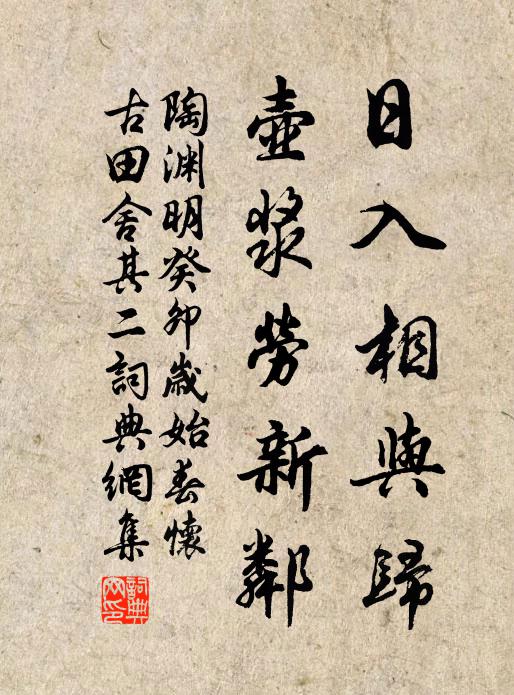 日入相與歸
壺漿勞新鄰
陶渊明癸卯歲始春懷
古田舍其二詞典網集
詞典网印